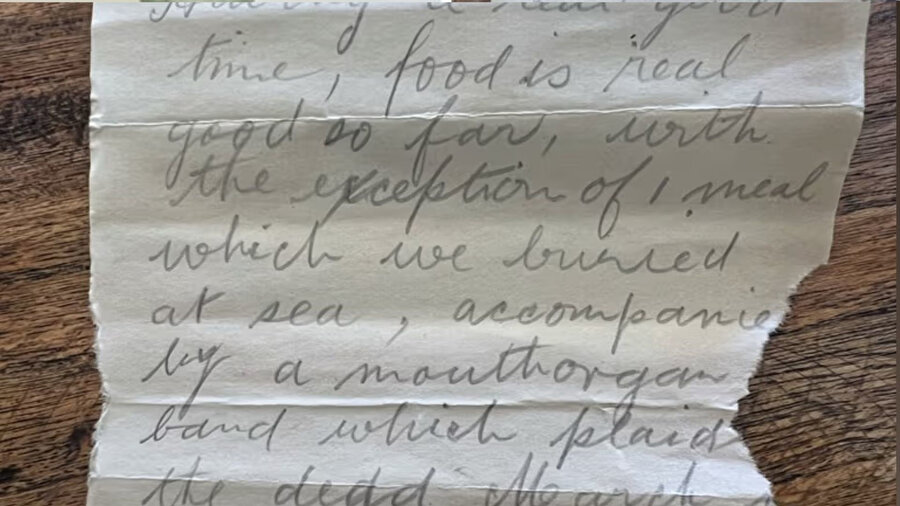 Having a real good
time, food is real
good so far, with
the exception of 1 meal
which we buried
at sea, accompanie
by a mouthorgan
band which plaid
the dead March